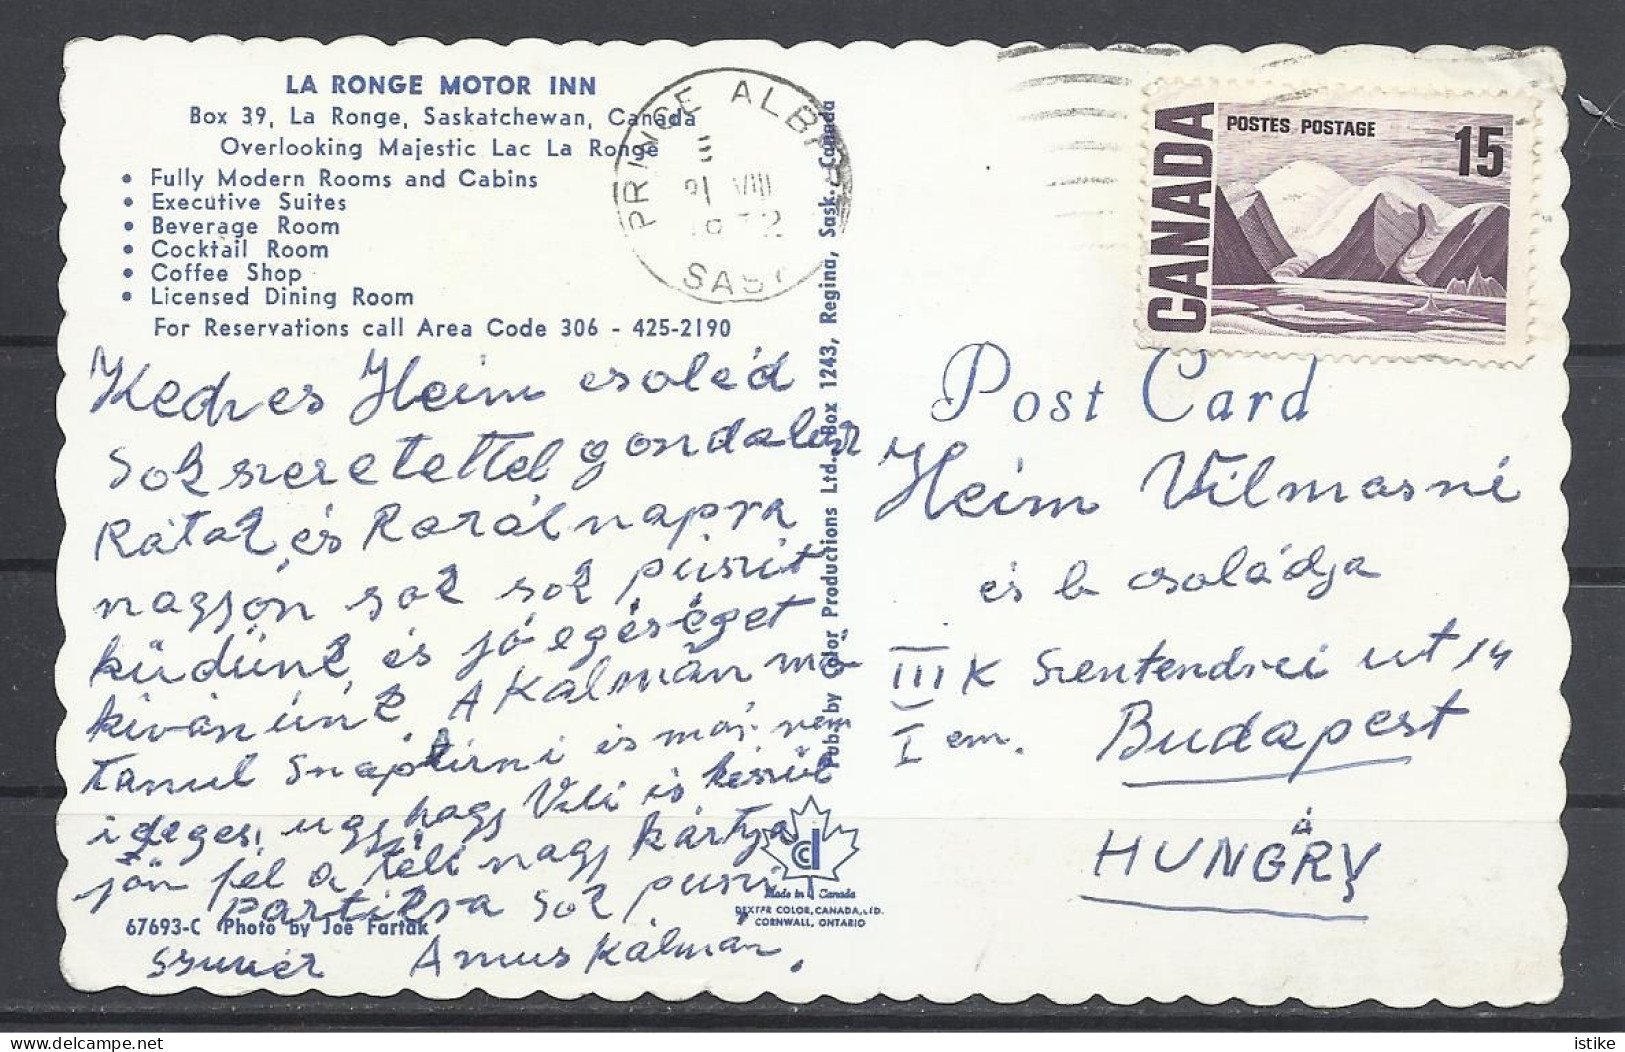 LA RONGE MOTOR INN
Box 39, La Ronge, Saskatchewan, Canada
Overlooking Majestic Lac La Ronge
• Fully Modern Rooms and Cabins
• Executive Suites
• Beverage Room
• Cocktail Room
• Coffee Shop
• Licensed Dining Room
For Reservations call Area Code 306 - 425-2190
Kedves Heim család
Sok szeretettel gondalunk
Rátok és Karál napra
nagyon sok sok puszit
küdünk és jó egéséget
kivánunk. A Kálmán má
tanul és már nem
ideges, ugy hogy Vili is készül
jön fel a téli nagy kártya
partikra sok puszi
Amus Kálmán.
67693-C Photo by Joe Fartak
PRINCE ALBERT
VIII
SASK
Pub. by Color Productions Ltd. Box 1243, Regina, Sask. Canada
Made in Canada
DEXTER COLOR, CANADA, LTD.
CORNWALL, ONTARIO
CANADA
POSTES POSTAGE
15
Post Card
Heim Vilmosné
és b családja
III K Szentendrei ut 14
I em. Budapest
HUNGRY
A
istike